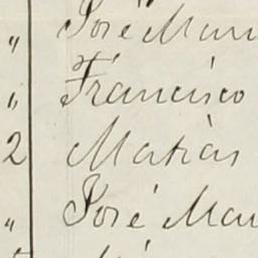 " José Man
" Francisco
2 Matias
" José Man